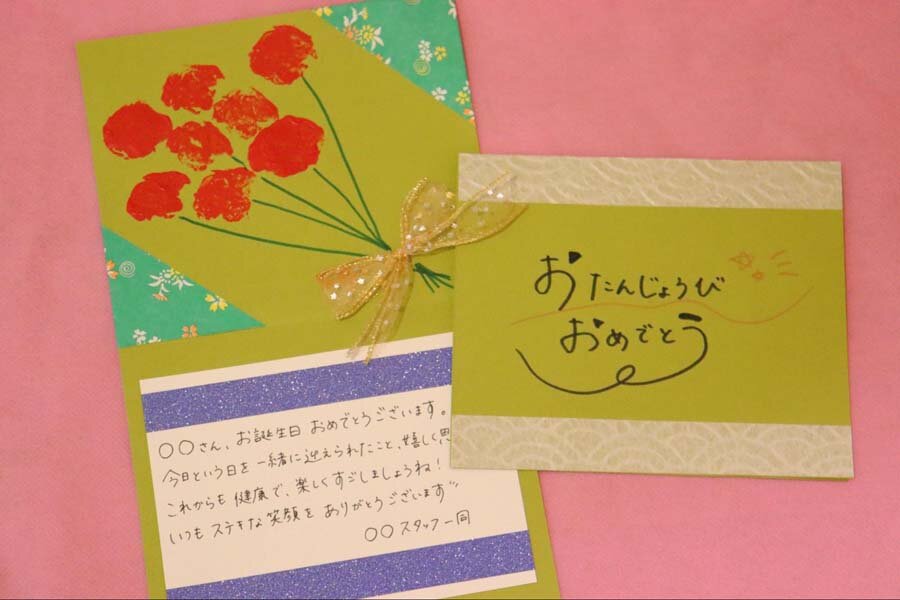 おたんじょうび
おめでとう
〇〇さん、お誕生日 おめでとうございます。
今日という日を 一緒に迎えられたこと、嬉しく思
これからも 健康で、楽しくすごしましょうね！
いつも ステキな笑顔を ありがとうございます
〇〇スタッフ一同